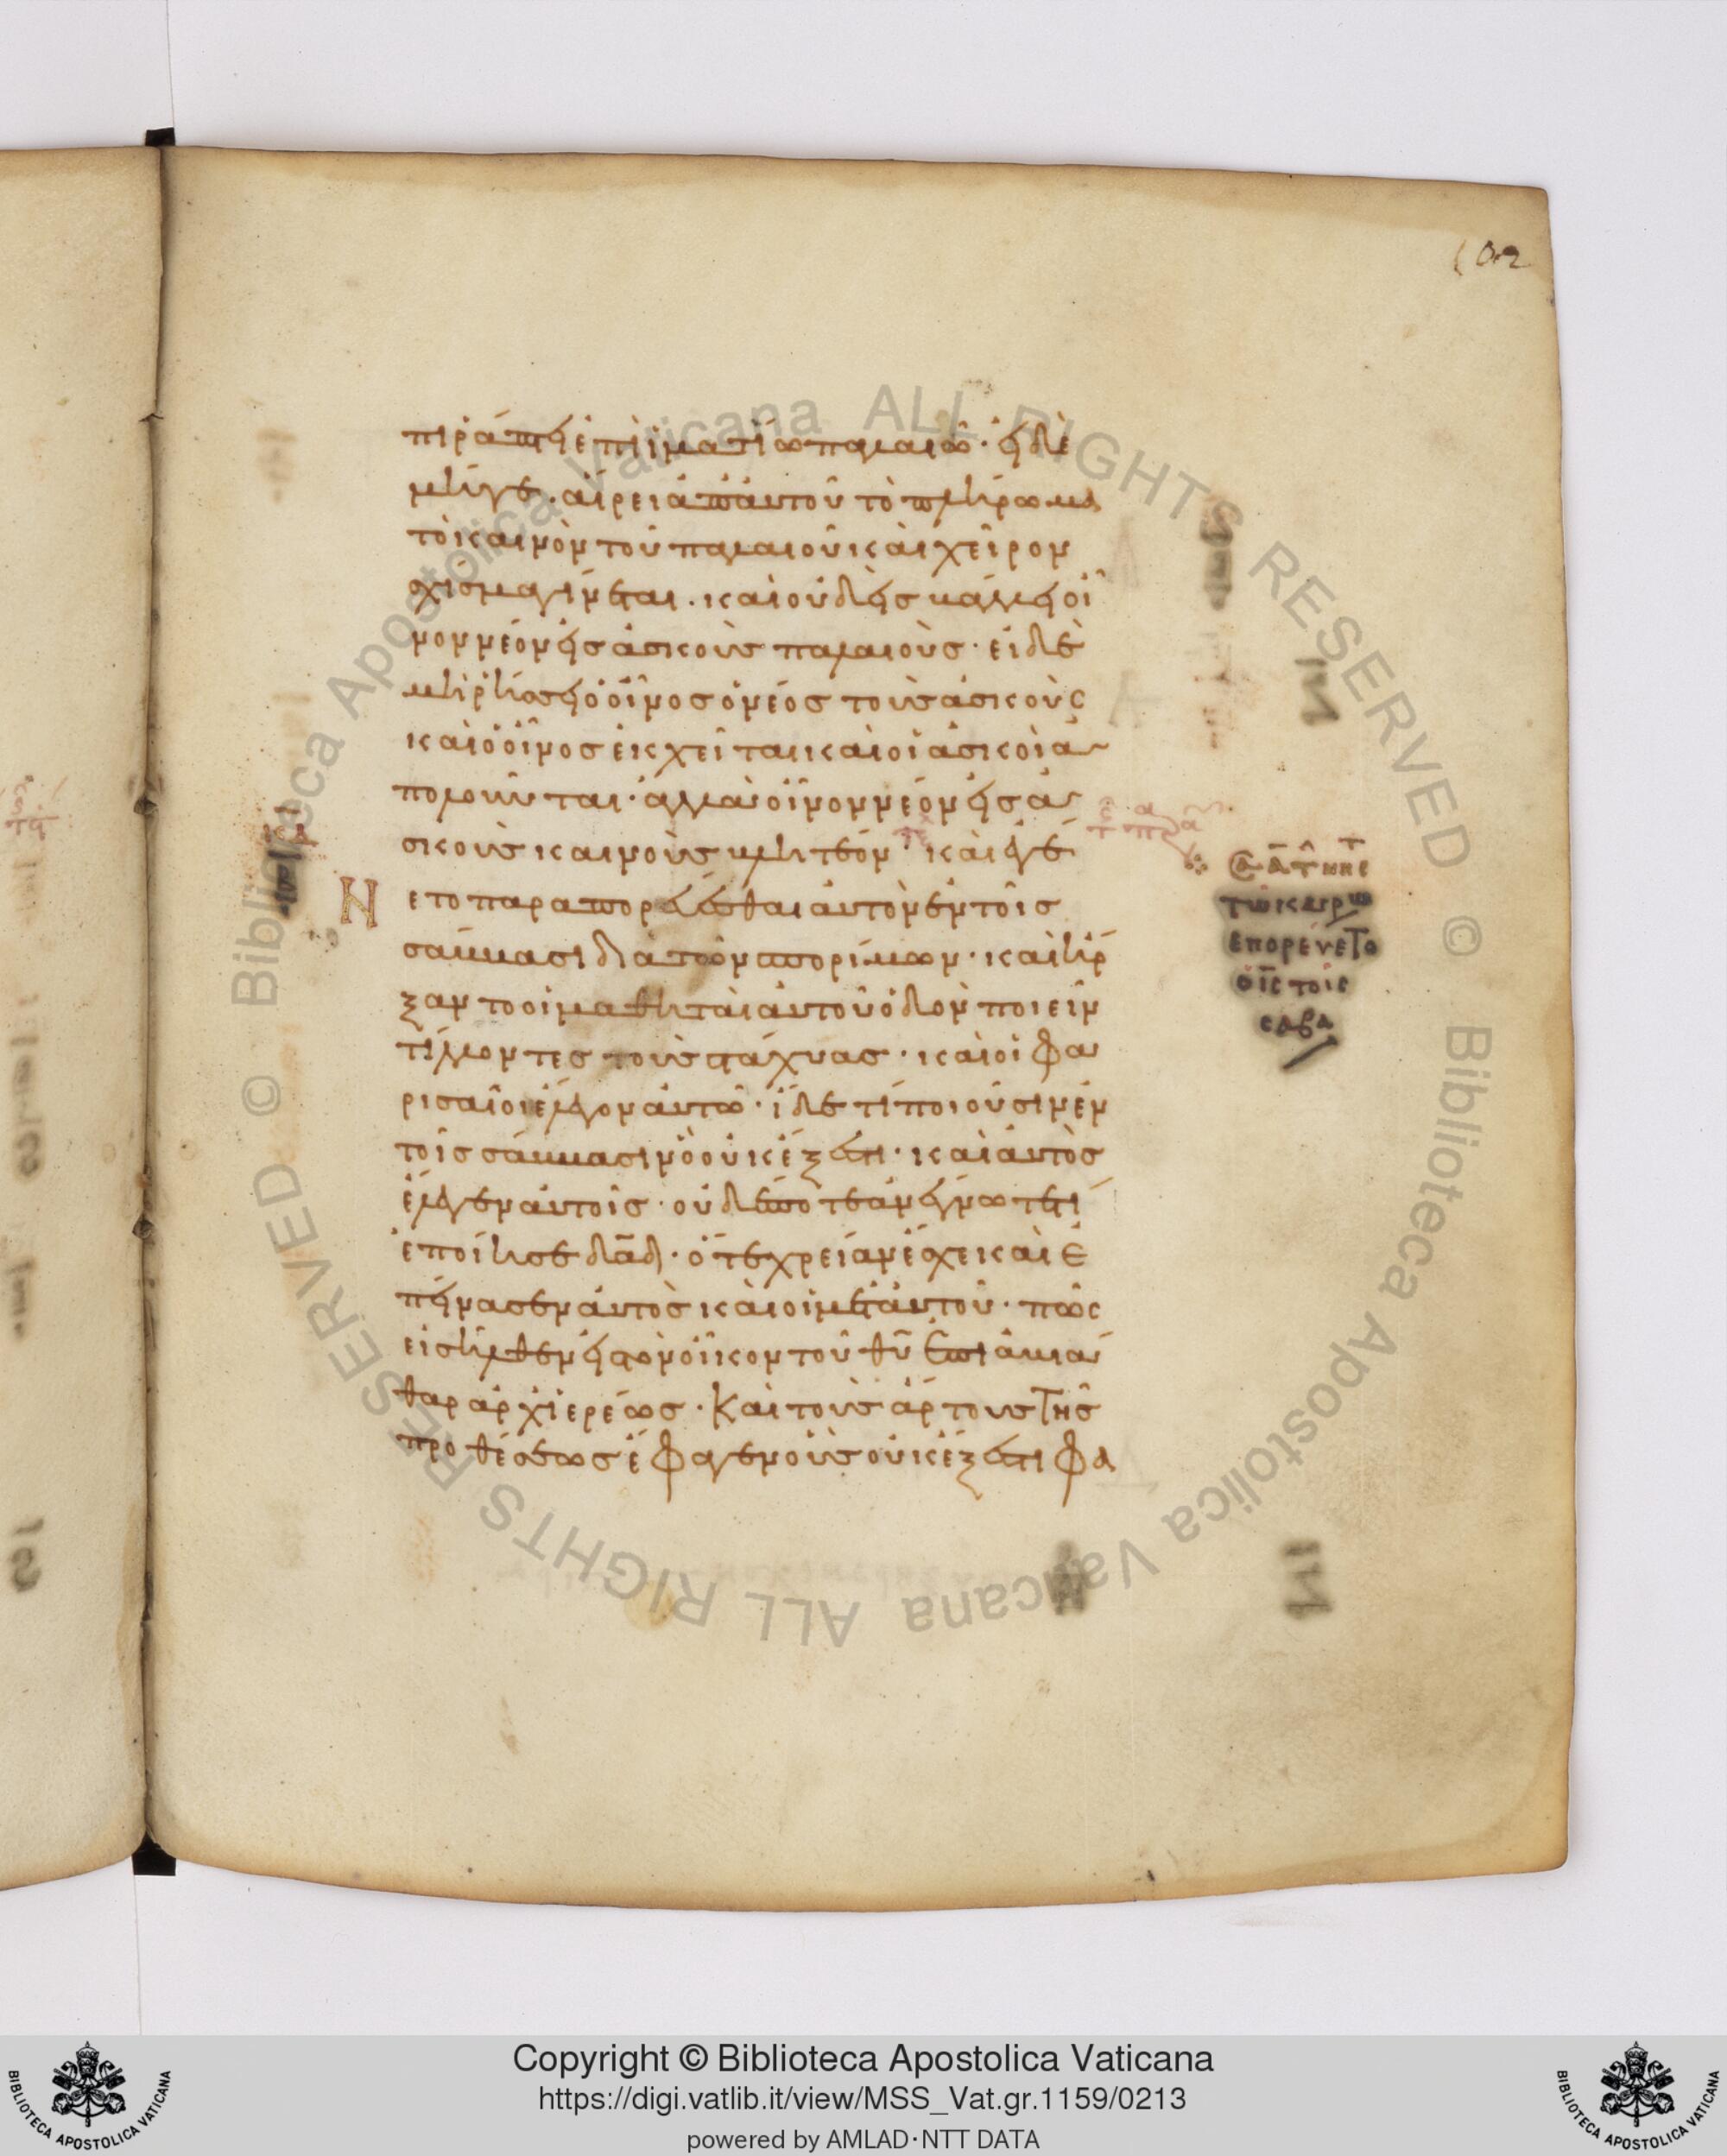 102
πιράπτει ἐπὶ ἱματίω παλαιῶ· εἰ δὲ
μήγε. αἴρει ἀπ' αὐτοῦ τὸ πλήρωμα
τὸ καινὸν τοῦ παλαιοῦ καὶ χεῖρον
σχίσμα γίνεται. καὶ οὐδεὶς βάλλει οἶ
νον νέον εἰς ἀσκοὺς παλαιοὺς· εἰ δὲ
μὴ ῥήσσει ὁ οἶνος ὁ νέος τοὺς ἀσκοὺς
καὶ ὁ οἶνος ἐκχεῖται καὶ οἱ ἀσκοὶ ἀ
πολοῦνται· ἀλλὰ οἶνον νέον εἰς ἀ
σκοὺς καινοὺς βλητέον· καὶ ἐγέ
Ν ετο παραπορεύεσθαι αὐτὸν ἐν τοῖς
σάββασι διὰ τῶν σπορίμων· καὶ ἤρ
ξαντο οἱ μαθηταὶ αὐτοῦ ὁδὸν ποιεῖν
τίλλοντες τοὺς στάχυας· καὶ οἱ φα
ρισαῖοι ἔλεγον αὐτῶ· ἴδε τί ποιοῦσιν ἐν
τοῖς σάββασιν ὃ οὐκ ἔξεστι· καὶ αὐτὸς
ἔλεγεν αὐτοῖς· οὐδέποτε ἀνέγνωτε τί
ἐποίησε δα̅δ· ὅτε χρείαν ἔσχε καὶ ἐ
πείνασεν αὐτὸς καὶ οἱ μετ' αὐτοῦ· πῶς
εἰσῆλθεν εἰς τὸν οἶκον τοῦ θυ̅ ἐπὶ ἀβιά
θαρ ἀρχιερέως· καὶ τοὺς ἄρτους τῆς
προθέσεως ἔφαγεν οὓς οὐκ ἔξεστι φα
τῶ καιρω
επορεύετο
ὁ ι̅ς̅ τοις
σαβα
Copyright © Biblioteca Apostolica Vaticana
https://digi.vatlib.it/view/MSS_Vat.gr.1159/0213
powered by AMLAD·NTT DATA
BIBLIOTECA APOSTOLICA VATICANA
BIBLIOTECA APOSTOLICA VATICANA
© Biblioteca Apostolica Vaticana ALL RIGHTS RESERVED
© Biblioteca Apostolica Vaticana ALL RIGHTS RESERVED